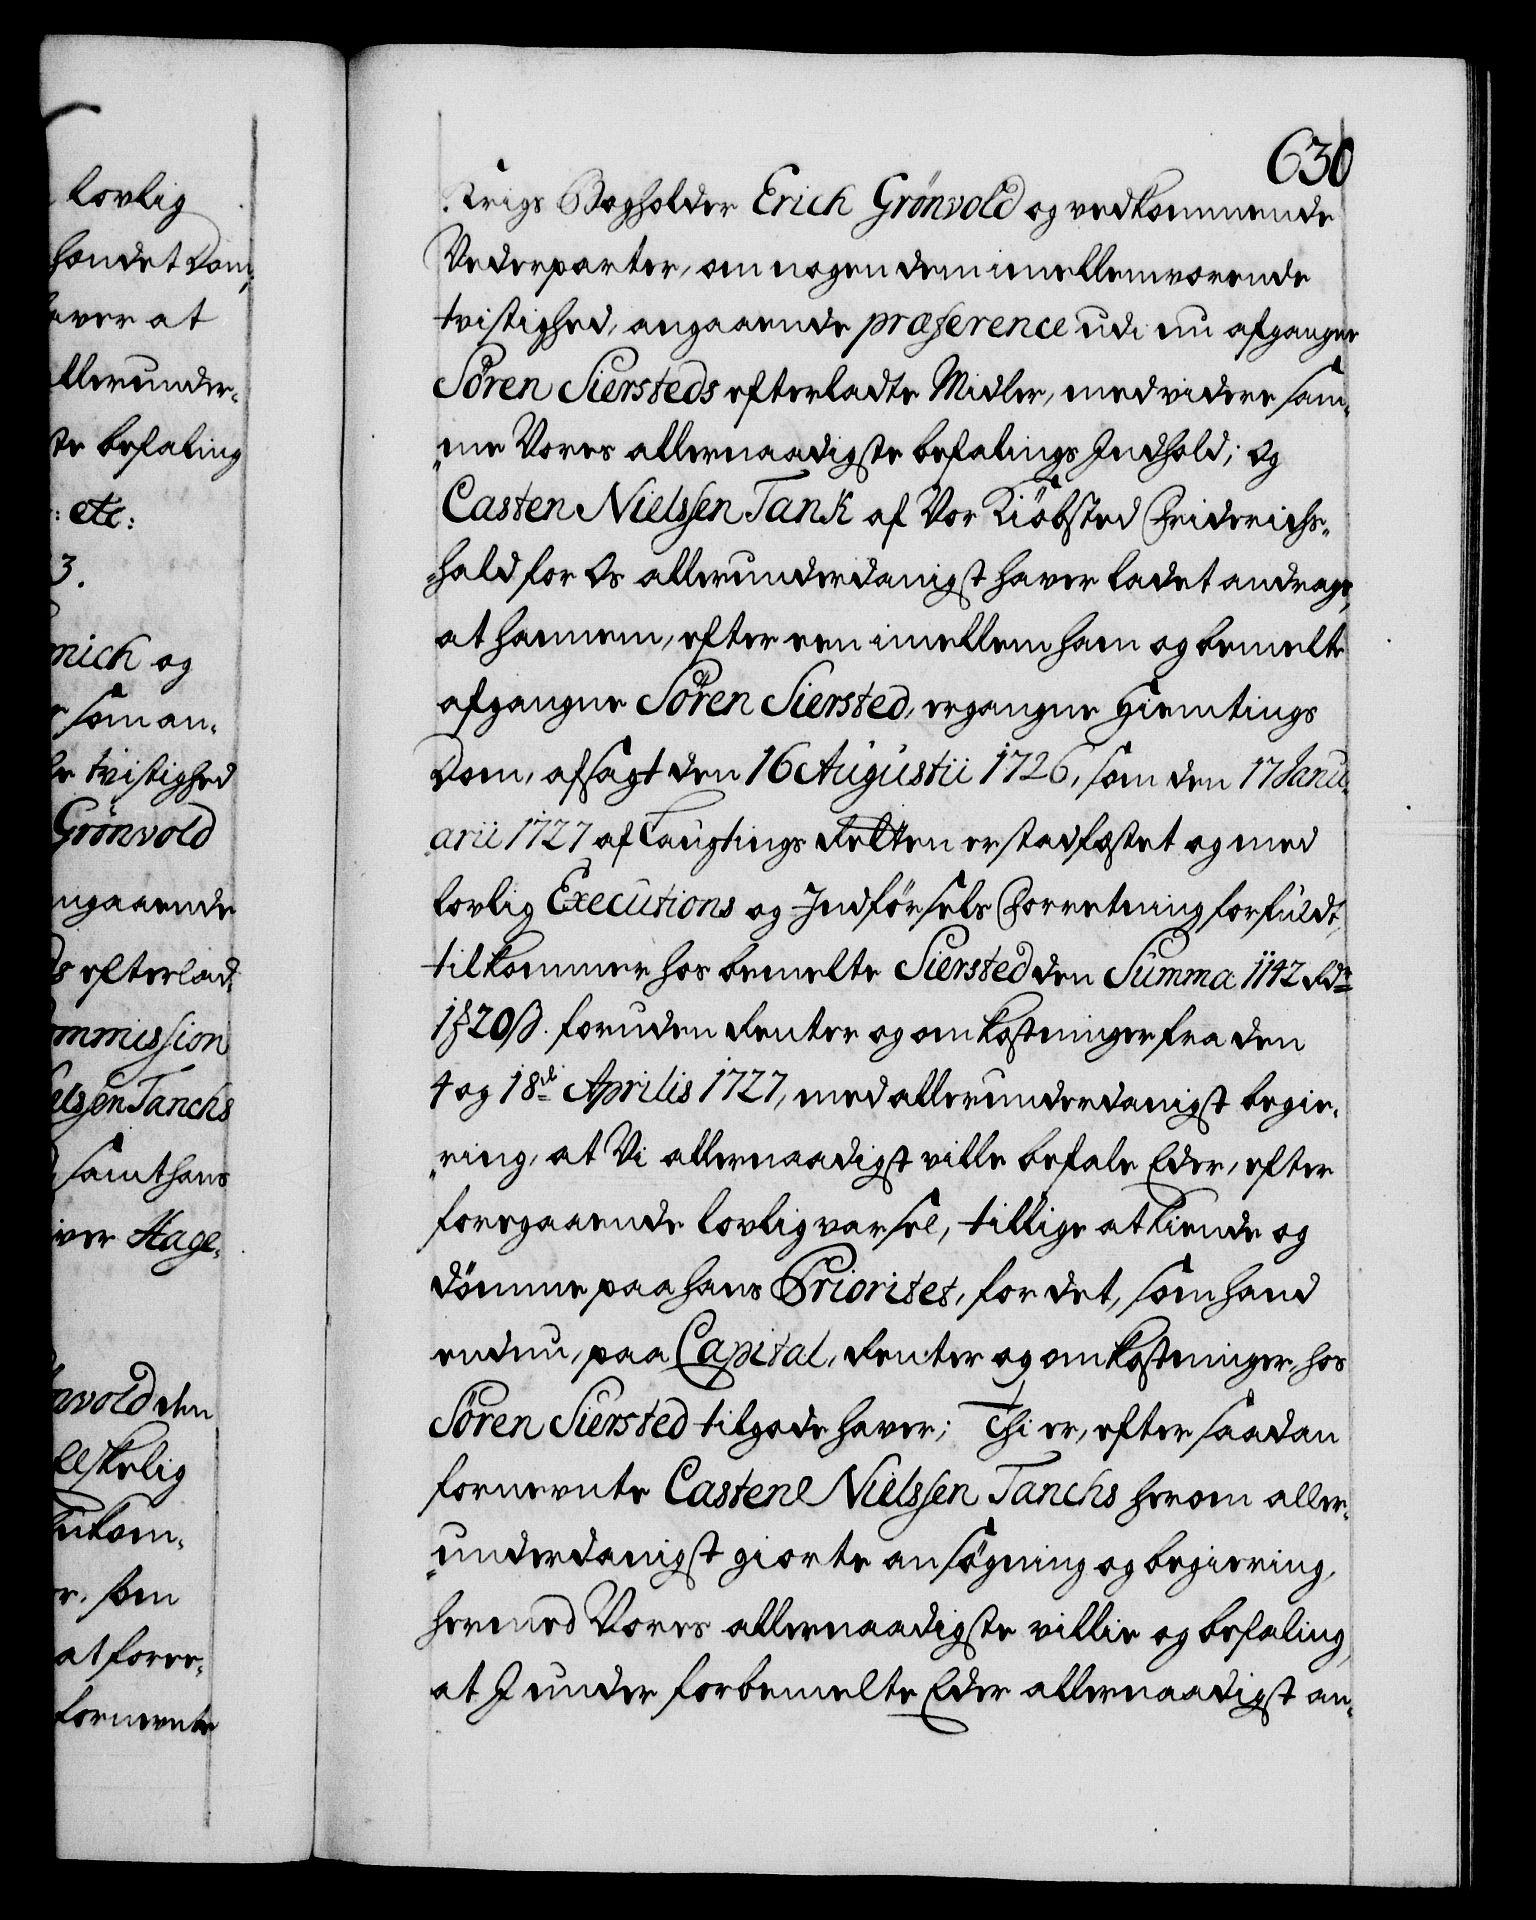 lovlig
handet Dom,
aver at
allerunder-
ste befaling
: etc:
3.
mich og
r som an-
le tvistighed
Grönvold
ngaaende
ds efterlad-
ommission
elssen Tanchs
samt hans
iver Hage-
nvold den
llskelig
r. som
at fore-
fornevnte
630
Krigs Bogholder Erich Grönvold og vedkommende
Vederparter, om nogen dem imellemværende
tvistighed, angaaende præference udi nu afgangne
Sören Siersteds efterladte Midler, med videre sam-
me Vores allernaadigste befalings Indhold; og
Casten Nielssen Tank af Vor Kiöbsted Friderichs-
hald for Os allerunderdanigst haver ladet andrage,
at hannem, efter een imellem ham og bemelte
afgangne Sören Siersted, ergangne Hiemtings
Dom, afsagt den 16 Augustii 1726, som den 17 Janu-
arii 1727 af Laugtings Retten er stadfæstet og med
lovlig Executions og Indförsels Forretning forfuldt,
tilkommer hos bemelte Siersted den Summa 1142 Rdr
1 ₰ 20 ß. foruden Renter og omkostninger fra den
4 og 18de Aprilis 1727, med allerunderdanigst begie-
ring, at Vi allernaadigst ville befale Eder, efter
foregaaende lovlig varsel, tillige at kiende og
dömme paa hans Prioritet, for det, som hand
endnu, paa Capital, Renter og omkostninger, hos
Sören Siersted tilgode haver; Thi er, efter saadan
fornevnte Casten Nielssen Tanchs herom aller-
underdanigst giorte ansögning og begiering,
hermed Vores allernaadigste villie og befaling,
at I under forbemelte Eder allernaadigst an-